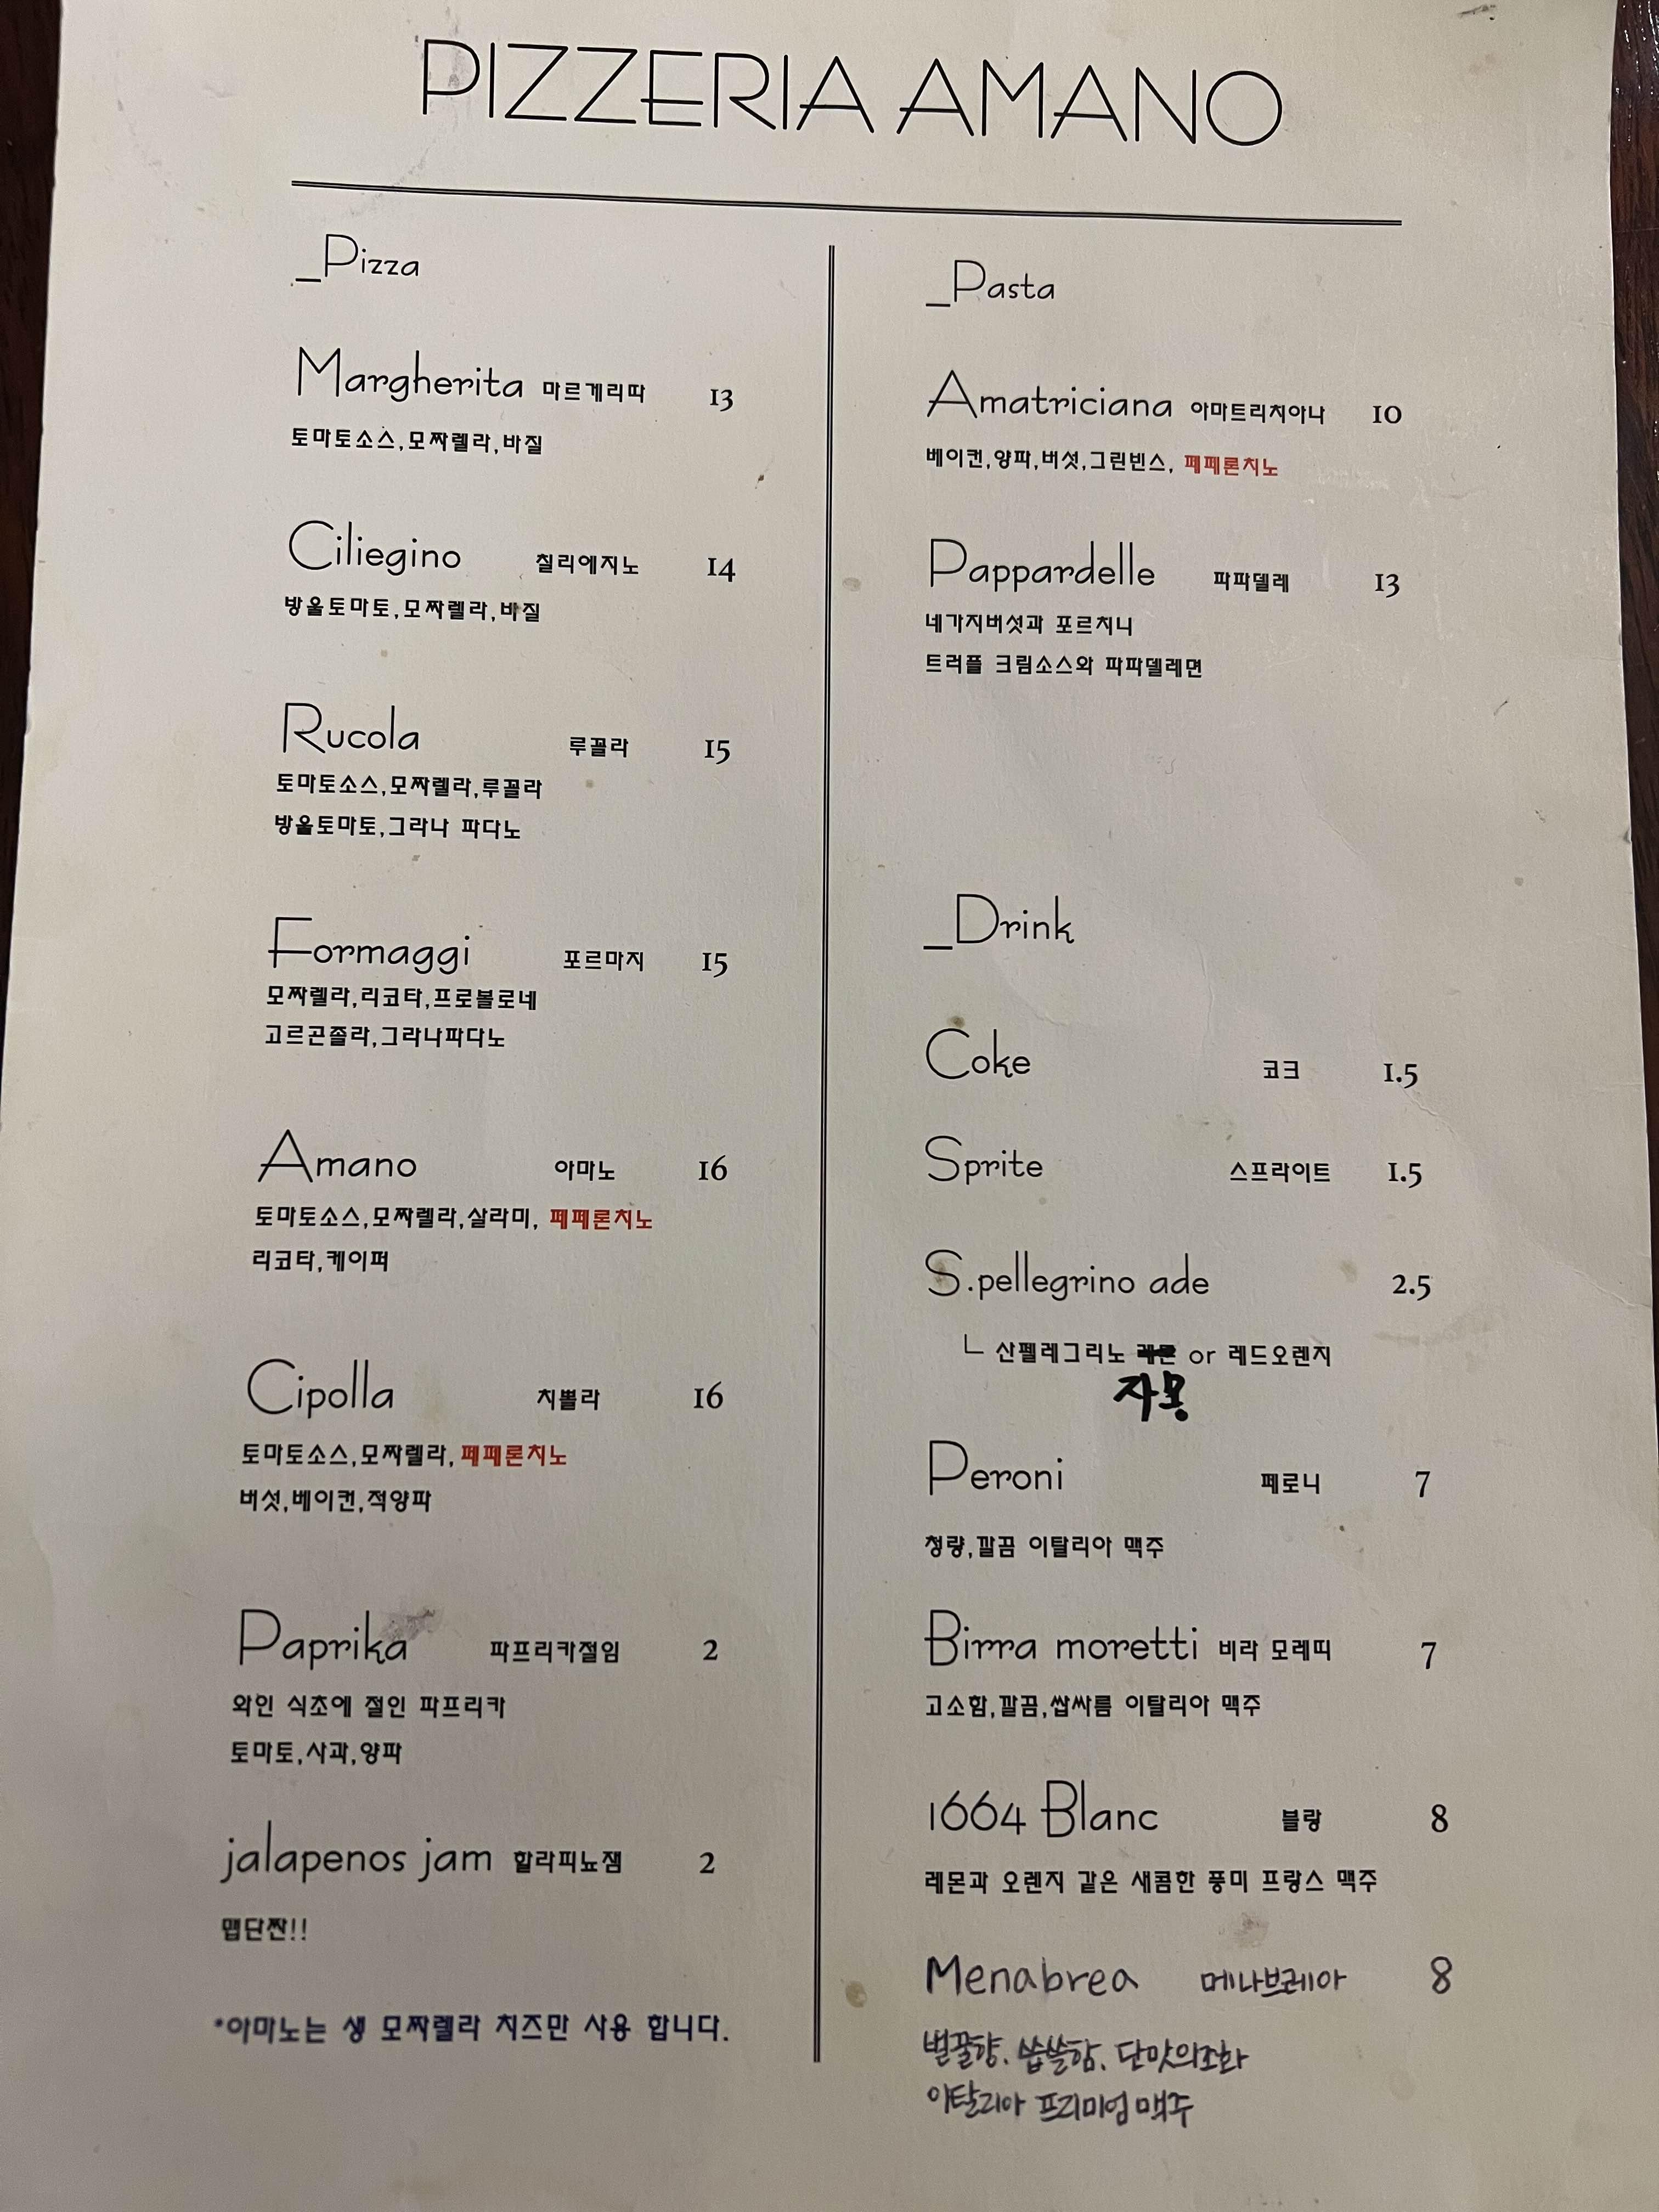 PIZZERIA AMANO
_Pizza
Margherita 마르게리따 13
토마토소스,모짜렐라,바질
Ciliegino 칠리에지노 14
방울토마토,모짜렐라,바질
Rucola 루꼴라 15
토마토소스,모짜렐라,루꼴라
방울토마토,그라나 파다노
Formaggi 포르마지 15
모짜렐라,리코타,프로볼로네
고르곤졸라,그라나파다노
Amano 아마노 16
토마토소스,모짜렐라,살라미, 페페론치노
리코타,케이퍼
Cipolla 치뽈라 16
토마토소스,모짜렐라, 페페론치노
버섯,베이컨,적양파
Paprika 파프리카절임 2
와인 식초에 절인 파프리카
토마토,사과,양파
jalapenos jam 할라피뇨잼 2
맵단짠!!
*아마노는 생 모짜렐라 치즈만 사용 합니다.
_Pasta
Amatriciana 아마트리치아나 10
베이컨,양파,버섯,그린빈스, 페페론치노
Pappardelle 파파델레 13
네가지버섯과 포르치니
트러플 크림소스와 파파델레면
_Drink
Coke 코크 1.5
Sprite 스프라이트 1.5
S.pellegrino ade 2.5
ㄴ 산펠레그리노 레몬 or 레드오렌지
자몽
Peroni 페로니 7
청량,깔끔 이탈리아 맥주
Birra moretti 비라 모레띠 7
고소함,깔끔,쌉싸름 이탈리아 맥주
1664 Blanc 블랑 8
레몬과 오렌지 같은 새콤한 풍미 프랑스 맥주
Menabrea 메나브레아 8
벌꿀향. 씁쓸함. 단맛의조화
이탈리아 프리미엄 맥주